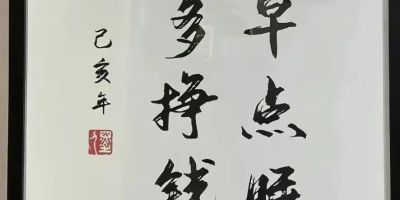 早点睡
多挣钱
己亥年